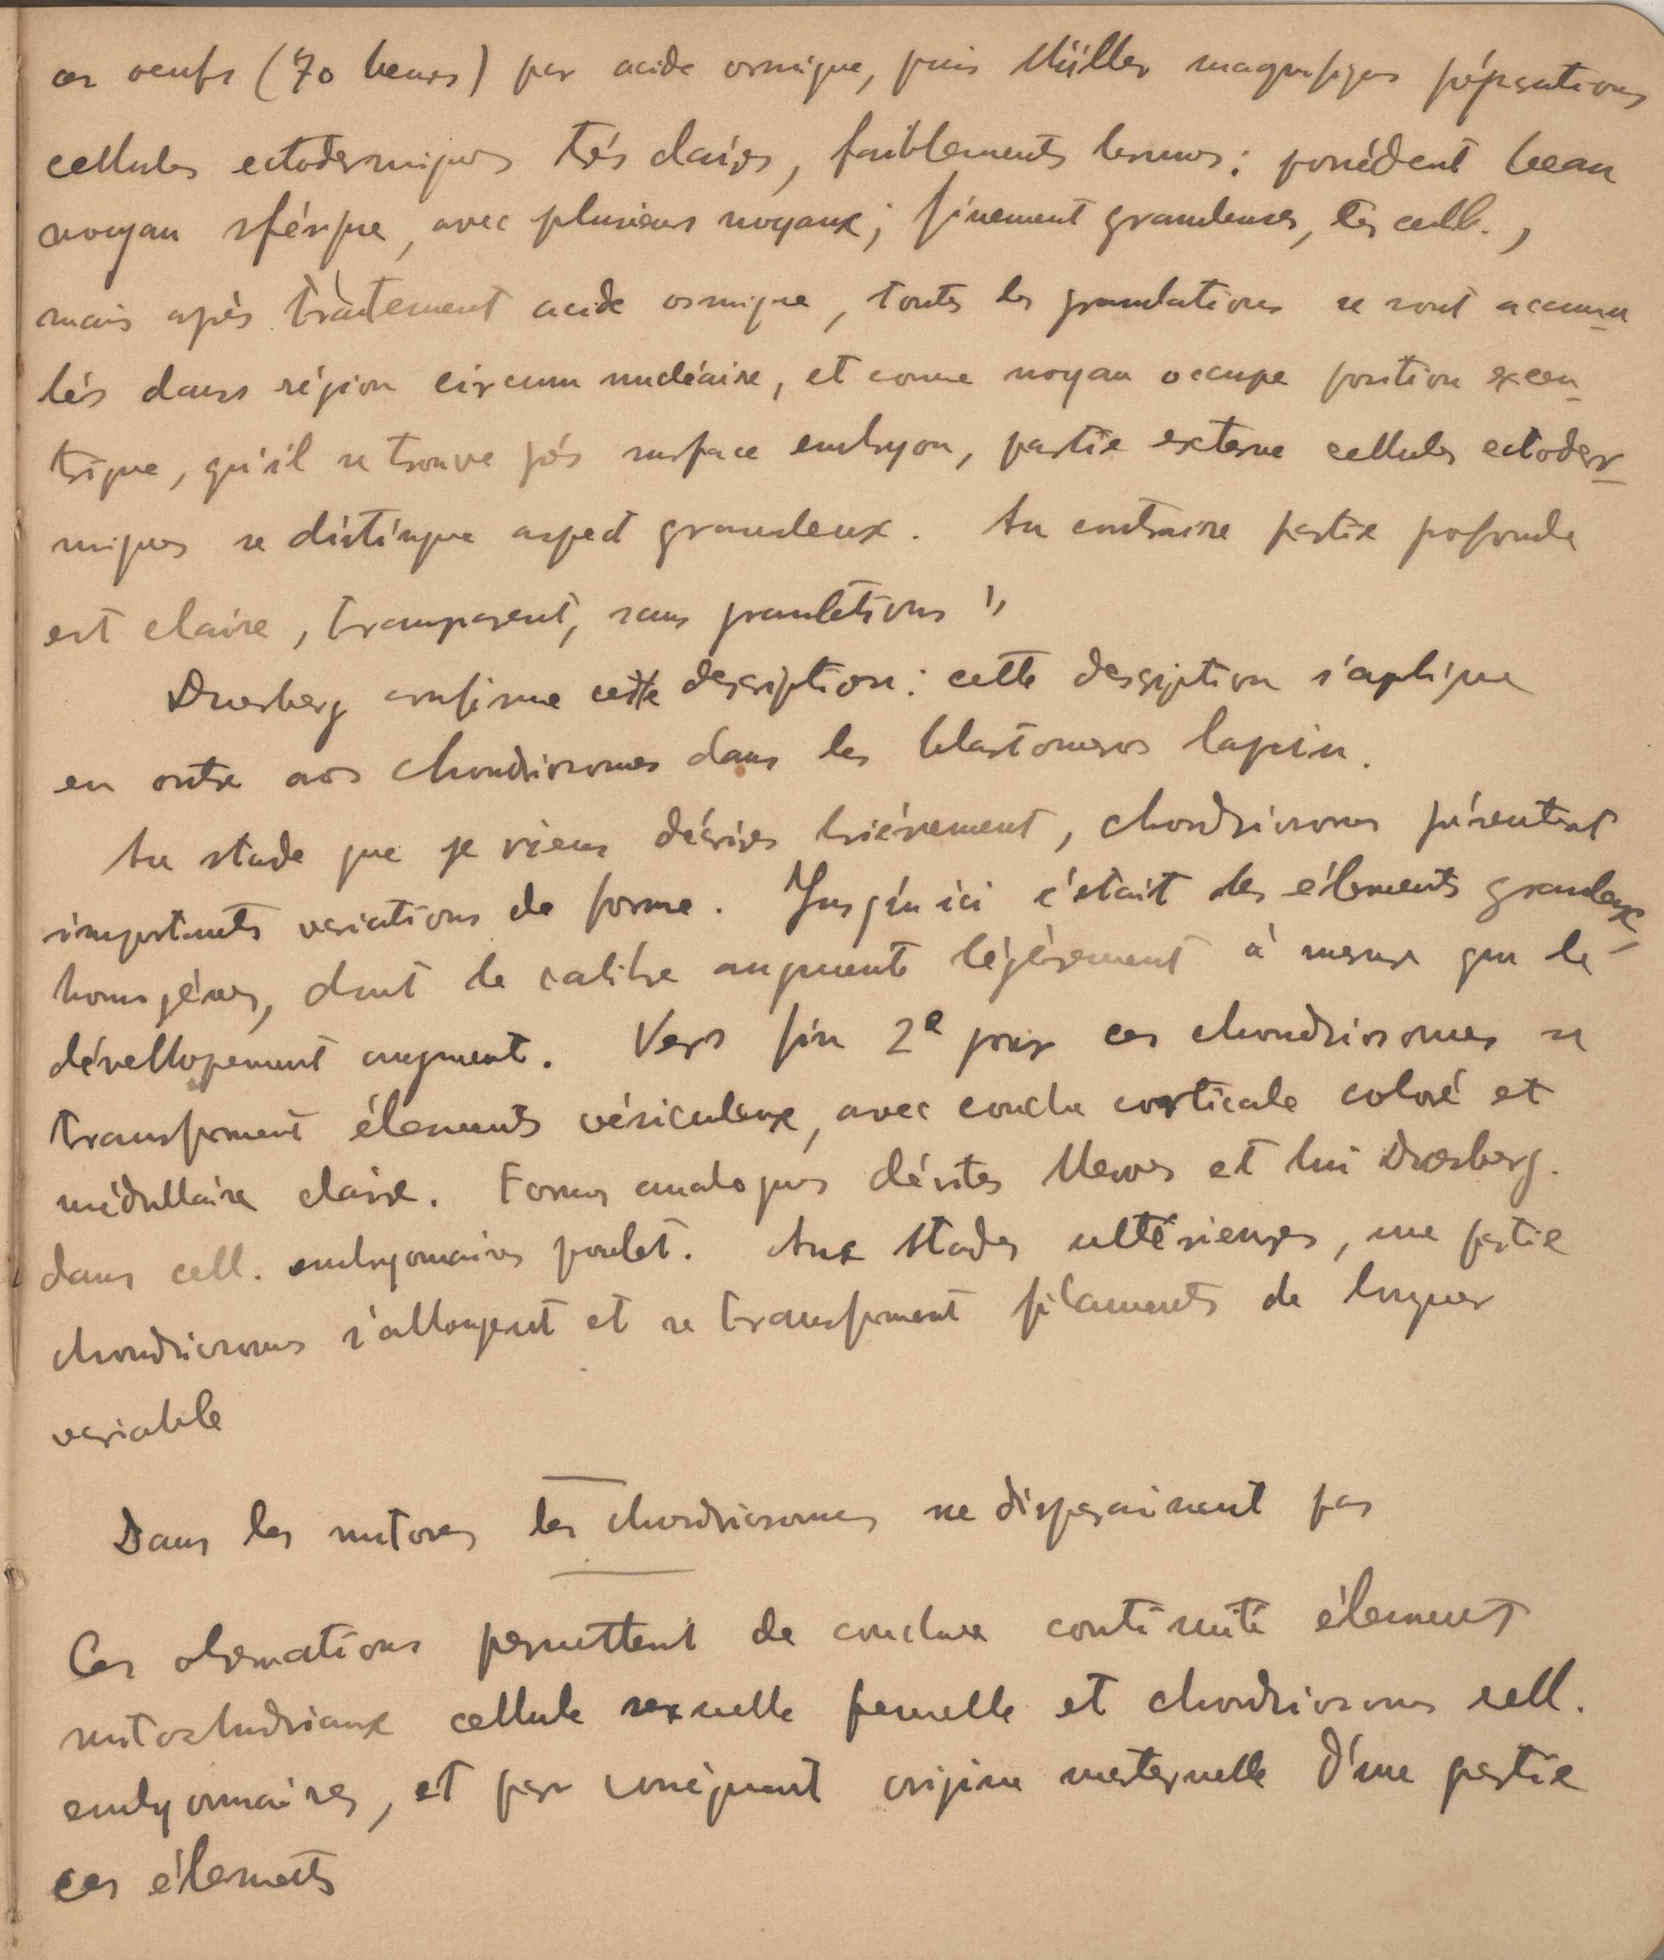 ces oeufs (70 heures) par acide osmique, puis Müller magnifiques préparations
cellules ectodermiques très claires, faiblements brunes; possèdent beau
noyau sférique, avec plusieurs noyaux; finement granuleuses, les cell.,
mais après traitement acide osmique, toutes les granulations se sont accumu
lés dans région circumnucléaire, et comme noyau occupe position excen-
trique, qu'il se trouve près surface embryon, partie externe cellules ectoder-
miques se distingue aspect granuleux. Au contraire partie profonde
est claire, transparent, sans granulations "
Duesberg confirme cette description: cette description s'aplique
en outre aos chondriosomes dans les blastomeres lapin.
Au stade que je viens décrires brièvement, chondriosomes présentent
importants variations de forme. Jusqu'ici c'était des élements granuleux,
homogénes, dont le calibre augmente légèrement à mesure que le
dévellopement augment. Vers fin 2e jour ces chondriosomes se
transforment élements vésiculeux, avec couche corticale coloré et
médullaire claire. Formes analogues décrites Meves et lui Duesberg.
dans cell. embryonnaires poulet. Aux stades ultérieures, une partie
chondriosomes s'allongent et se transforment filaments de longuer
variable
Dans les mitoses les chondriosomes ne disparaissent pas
Ces observations permettent de conclure continuité élement
mitochondriaux cellule sexuelle femelle et chondriosomes cell.
embryonnaires, et par conséquent origine maternelle d'une partie
ces élements